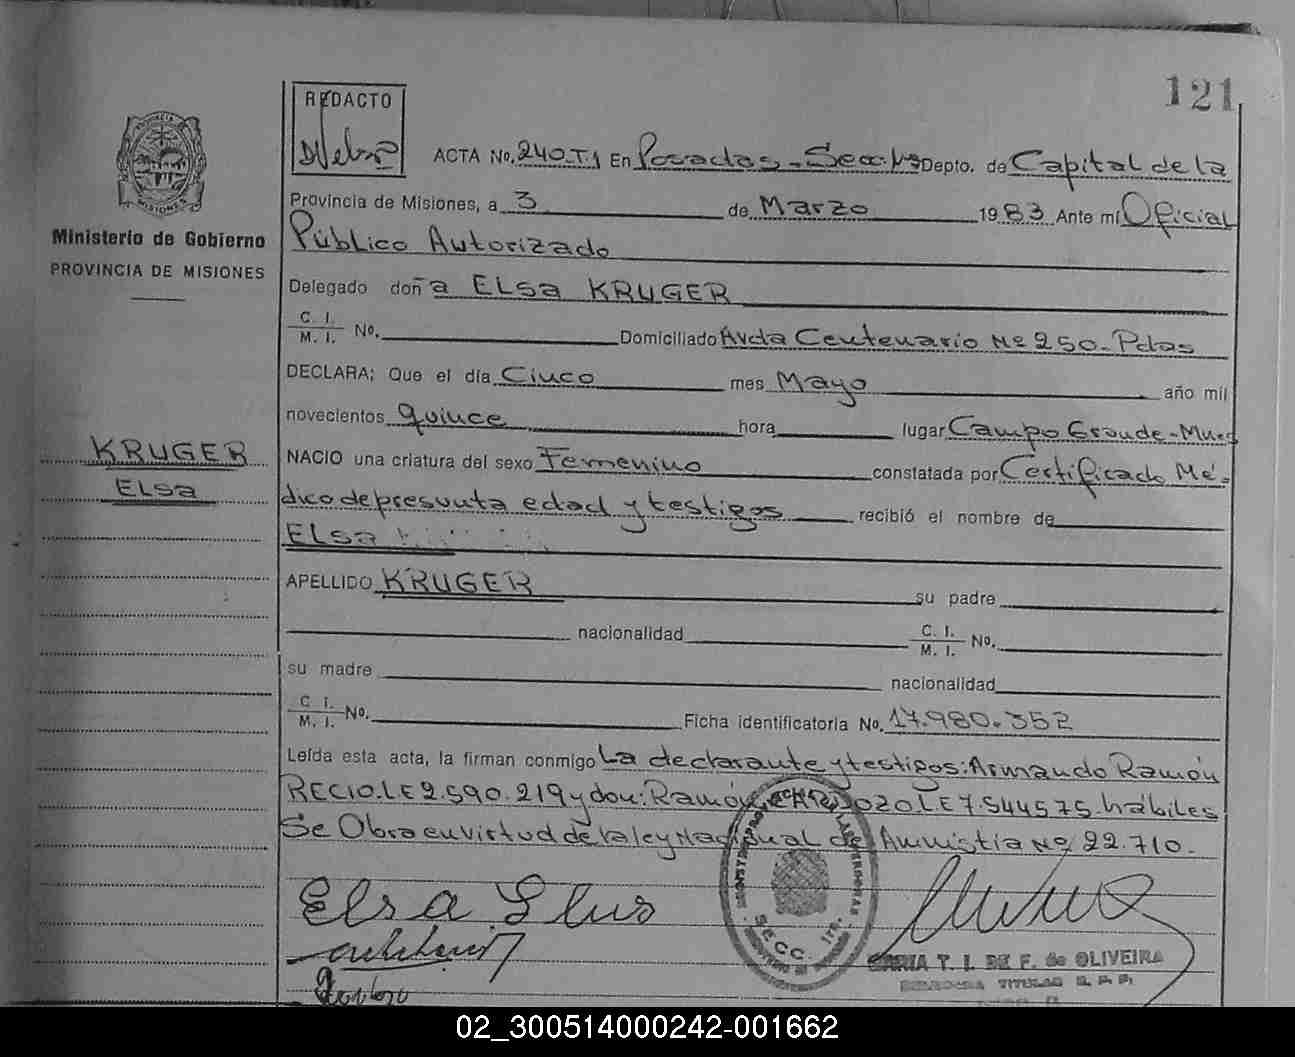 121
REDACTO
ACTA No. 240.T1 En Posadas - Secc. 1ª Depto. de Capital de la
Provincia de Misiones, a 3 de Marzo 1983 Ante mí Oficial
Público Autorizado
Ministerio de Gobierno
PROVINCIA DE MISIONES
Delegado doña ELSA KRUGER
C. I.
M. I. No. Domiciliado Avda Centenario Nº 250 - Pdas
DECLARA; Que el día Cinco mes Mayo año mil
novecientos quince hora lugar Campo Grande - Mnes
KRUGER
ELSA
NACIO una criatura del sexo Femenino constatada por Certificado Mé-
dico de presunta edad y testigos recibió el nombre de
ELSA
APELLIDO KRUGER su padre
nacionalidad C. I.
M. I. No.
su madre nacionalidad
C. I.
M. I. No. Ficha identificatoria No. 17.980.352
Leída esta acta, la firman conmigo La declarante y testigos: Armando Ramón
RECIO. LE 2.590.219 y don: Ramón LE 7.544575. hábiles
Se Obra en virtud de la ley Nacional de Amnistia Nº 22.710.
Elsa
SECC. 1ra.
MARIA T. I. DE F. de OLIVEIRA
TITULAR R. P. P.
02_300514000242-001662